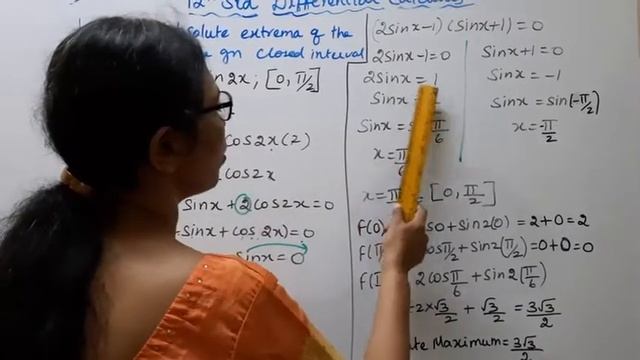 12th Std Differential Calculus
solute extrema of the
gn closed interval
sin2x ; [0, π/2]
cos2x(2)
cos2x
sinx + 2cos2x = 0
sinx + cos2x) = 0
sinx = 0
(2sinx-1) (sinx+1) = 0
2sinx-1=0
2sinx = 1
sinx =
sinx = π/6
x = π/6
sinx+1 = 0
sinx = -1
sinx = sin(-π/2)
x = -π/2
x = π [0, π/2]
f(0) so+sin2(0) = 2+0 = 2
f(π cosπ/2 + sin2(π/2) = 0+0 = 0
f(π 2cosπ/6 + sin2(π/6)
= 2×√3/2 + √3/2 = 3√3/2
te Maximum = 3√3/2